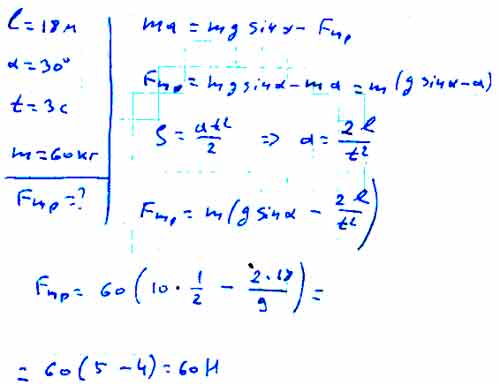 l = 18 м
α = 30°
t = 3 с
m = 60 кг
Fтр = ?
ma = mg sin α - Fтр
Fтр = mg sin α - ma = m(g sin α - a)
S = at²/2 => a = 2l/t²
Fтр = m(g sin α - 2l/t²)
Fтр = 60(10 · 1/2 - 2·18/9) =
= 60(5 - 4) = 60 Н